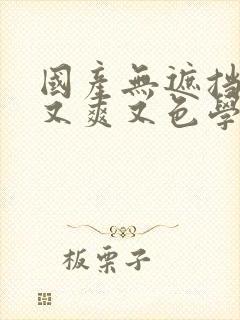 國產無遮挡
又爽又色學
板栗子